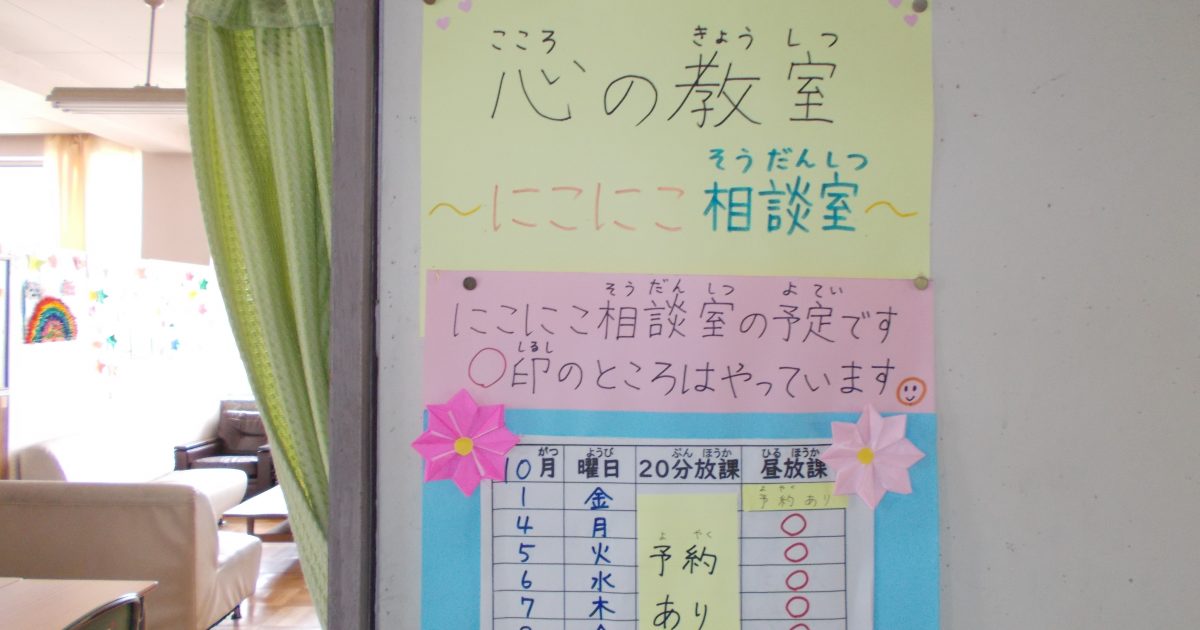 こころ きょう しつ
心の教室
そうだんしつ
～にこにこ相談室～
そうだん しつ よてい
にこにこ相談室の予定です
しるし
○印のところはやっています
がつ ようび ぷん ほうか ひる ほうか
10月 曜日 20分放課 昼放課
よ やく
1 金 予約あり
4 月 ○
5 火 ○
よ やく
予約
6 水 ○
あり
7 木 ○